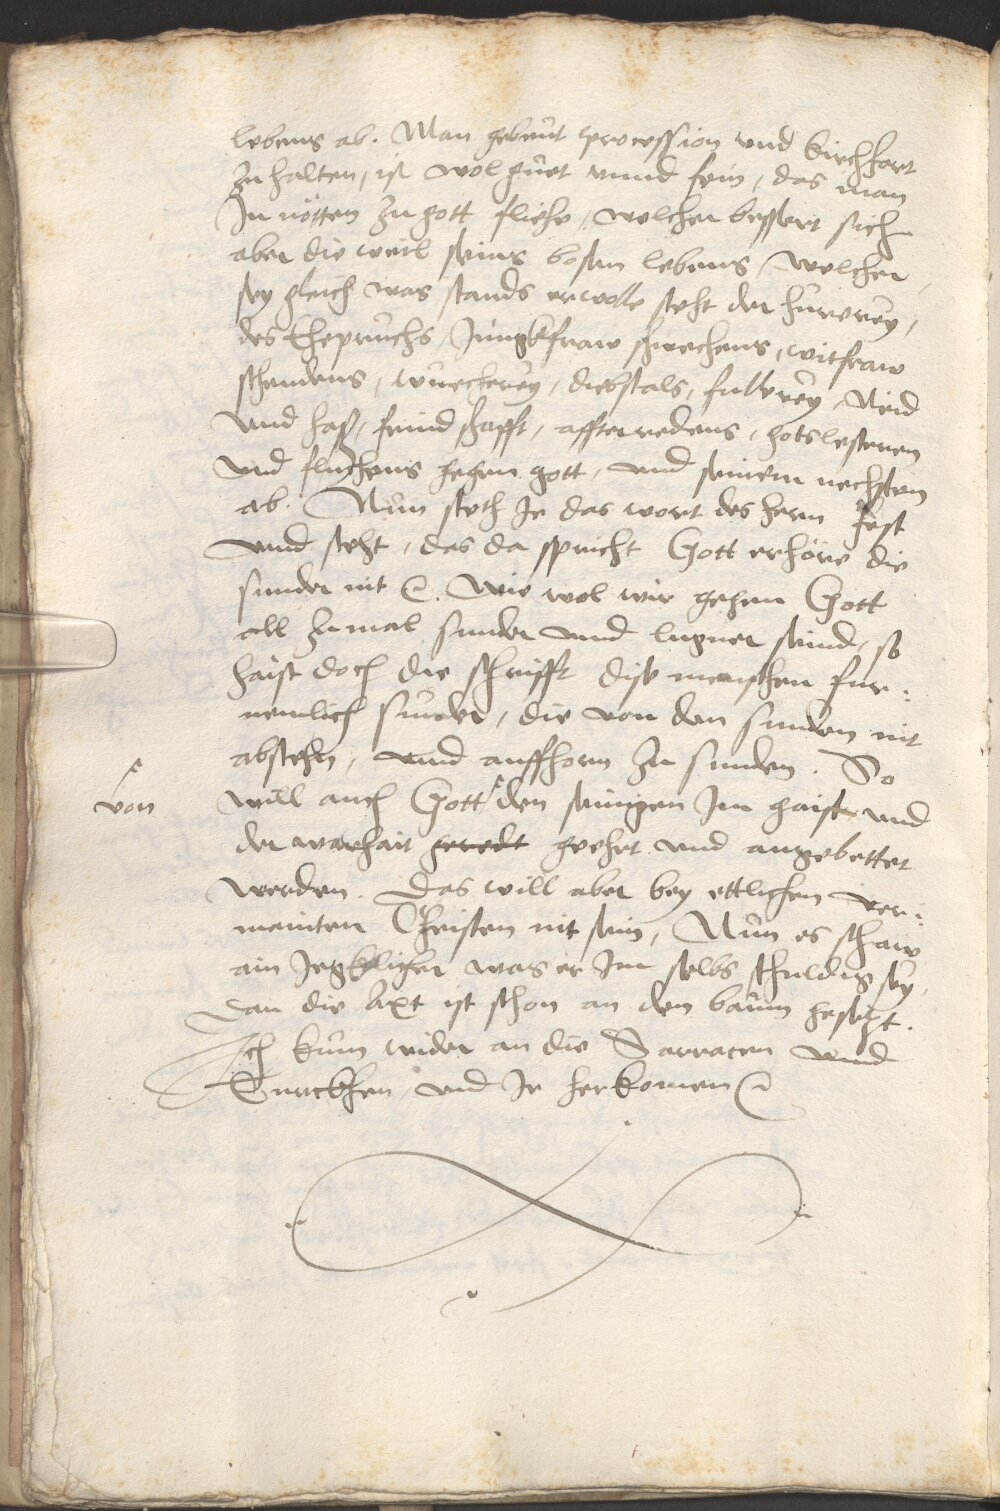 lebens ab. Man gebeut procession und kirchfart
zu halten, ist wol guet unnd fein, das man
In nötten zu gott fliehe, welcher bessert sich
aber die weil seins bosen lebens, Welcher,
sey gleich was stands er wolle steht der hurerey,
des Ehepruchs, Jungkfraw schwechens, witfraw
schendens, wuecherey, diebstals, fullerey, Neid
und haß, feindschafft, affterredens, gotslesteren
und fluchens gegen gott, und seinem nechsten
ab. Nun steth Je das wort des herrn fest
unnd steht, das da spricht Gott erhöre die
sunder nit ꝛc. Wie wol wir gegen Gott
all zumal sunder unnd lugner seind, so
haist doch die schrifft dise menschen fur:
nemlich sunder, die von den sunden nit
abstehn, unnd auffhorn zu sunden. So
von
will auch Gott ^ den seinigen Im gaist und
der warhait geredt geehrt und angebettet
werden. Das will aber bey ettlichen ver:
mainten Christen nit sein, Nun es schaw
ain Jegklicher was er Im selbs schuldig sey,
Dan die Axt ist schon an den baum gesetzt.
Ich kum wider an die Sarracen unnd
Turckhen und Ir herkomen ꝛc